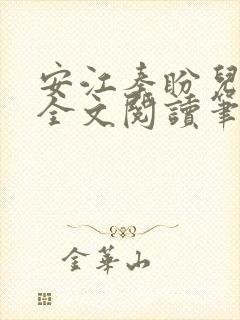 安江秦盼兒
全文閱讀筆
金華山